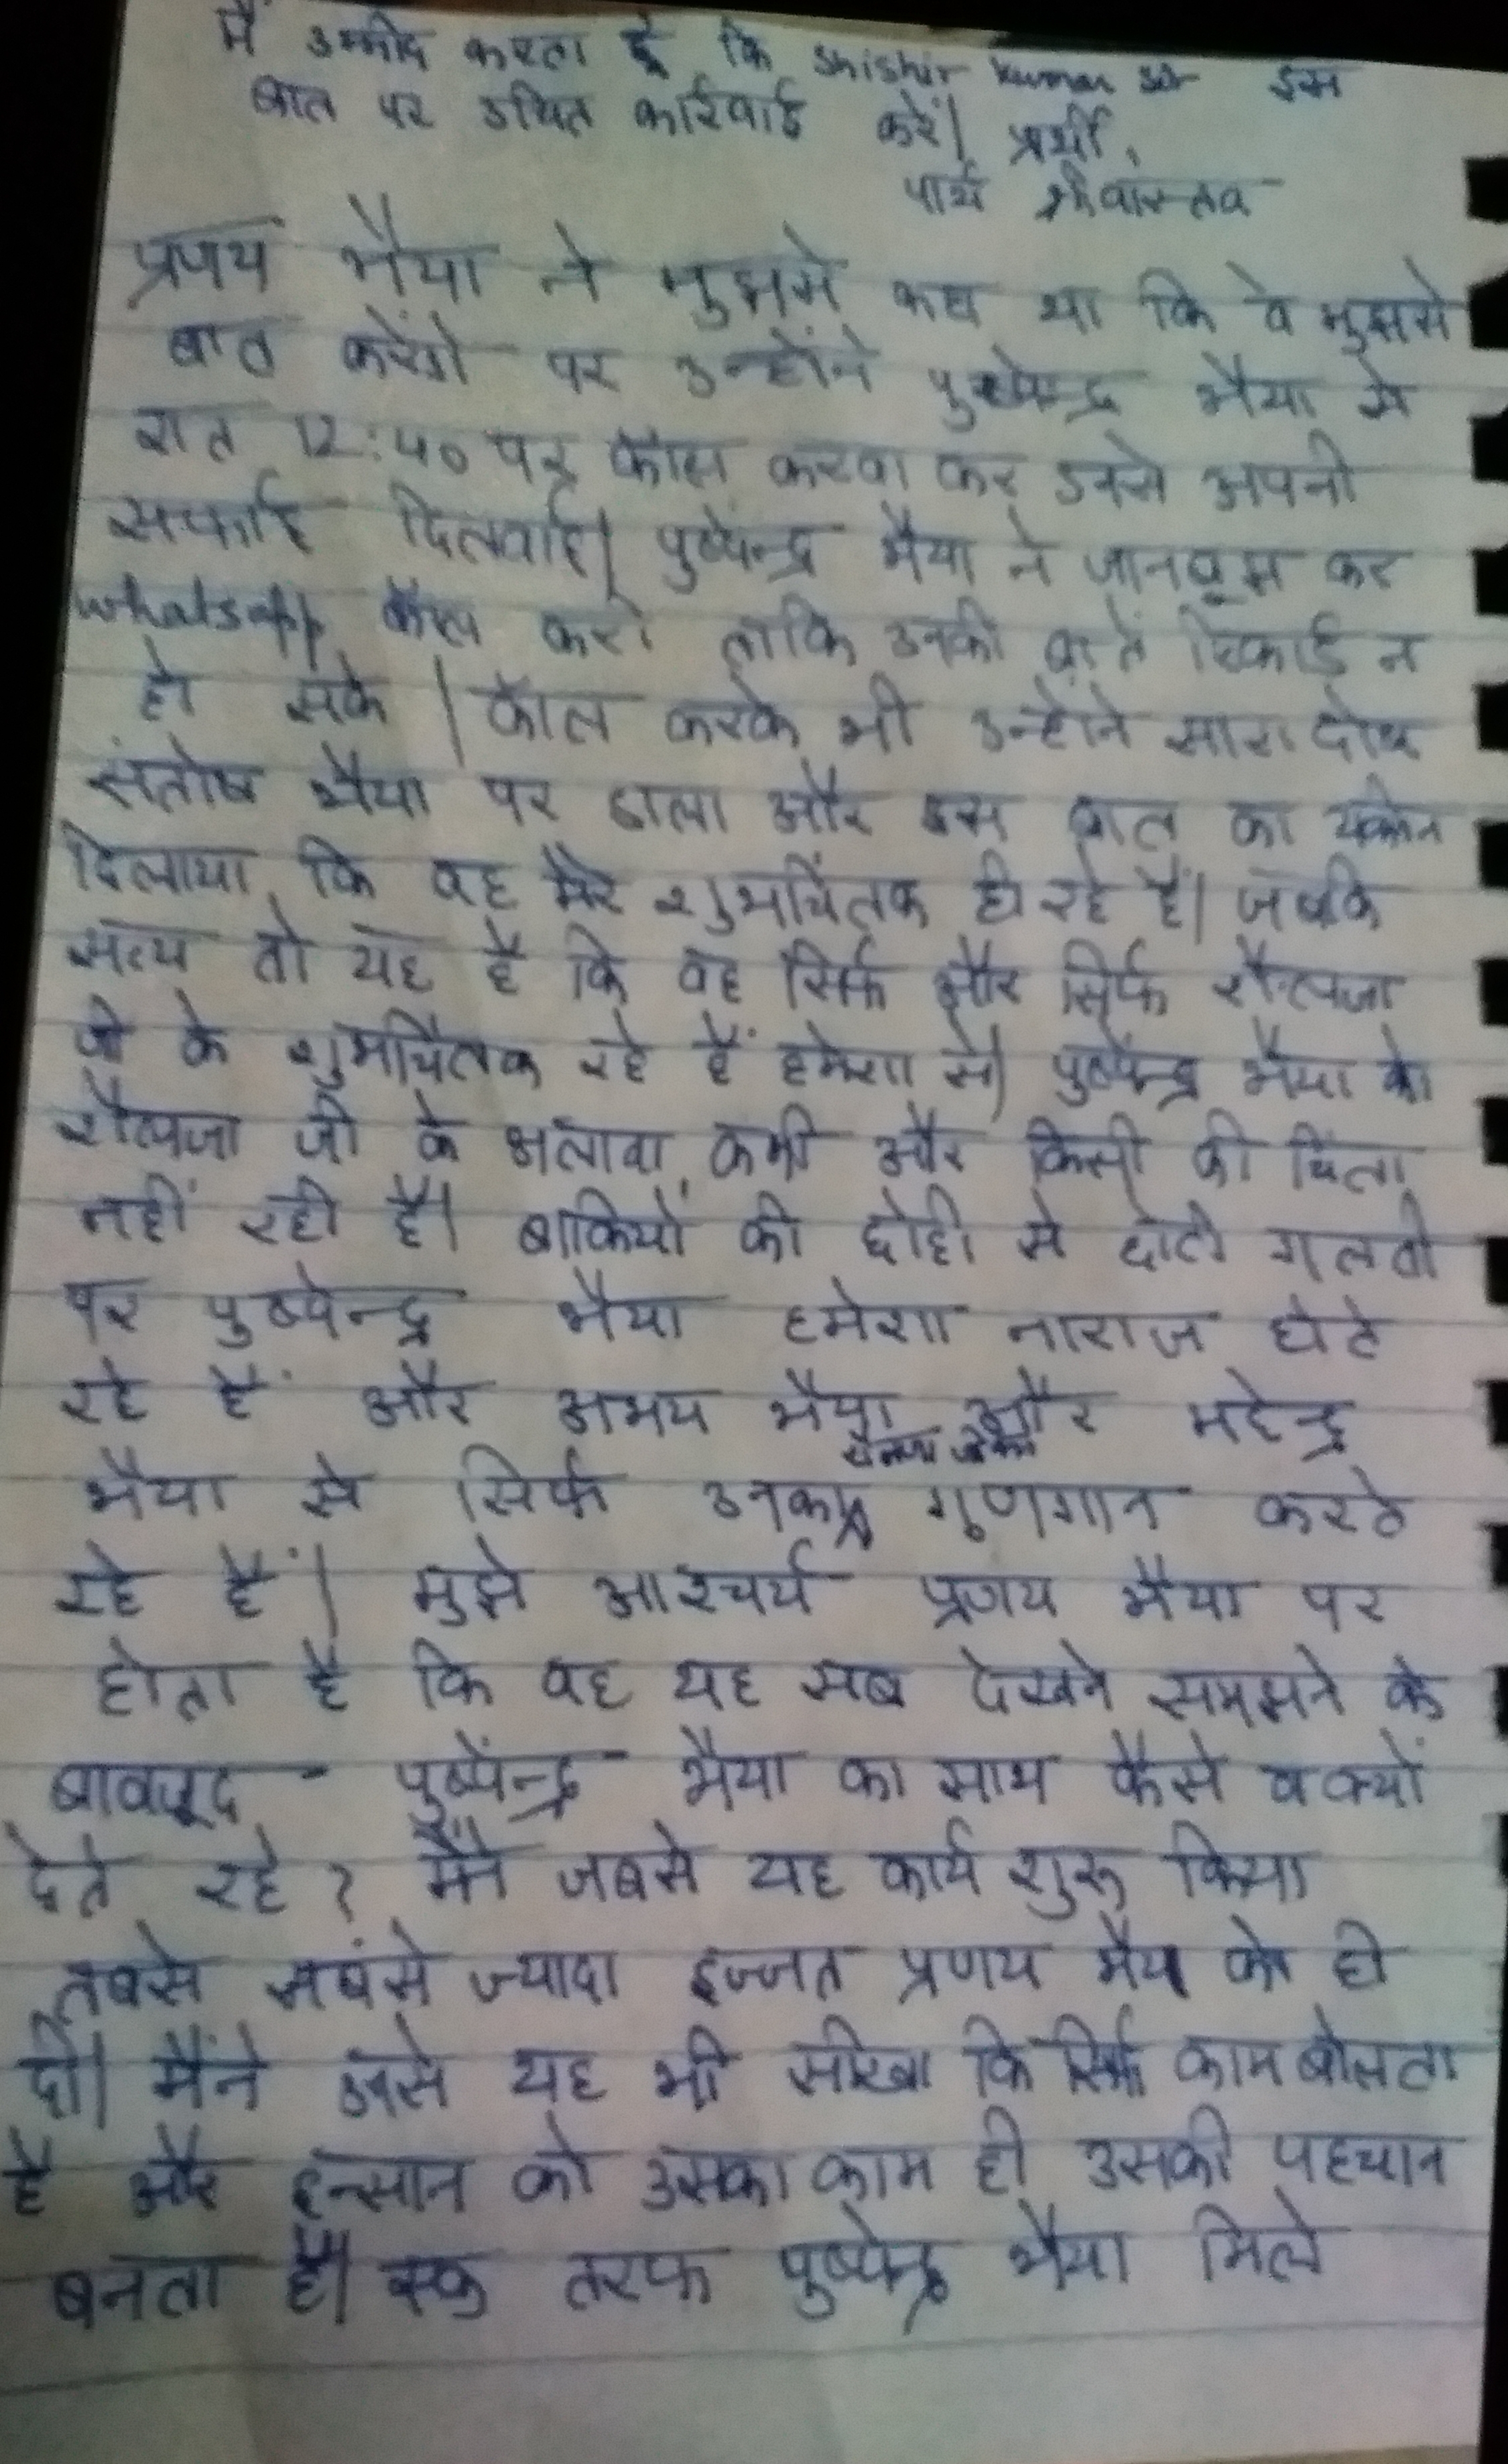 मैं उम्मीद करता हूँ कि Shishir Kumar इस
बात पर उचित कार्रवाई करें। प्रार्थी,
पार्थ श्रीवास्तव
प्रणय भैया ने मुझसे कहा था कि वे मुझसे
बात करेंगे पर उन्होंने पुष्पेन्द्र भैया से
रात 12:40 पर कॉल करवा कर उनसे अपनी
सफाई दिलवाई। पुष्पेन्द्र भैया ने जानबूझ कर
whatsapp कॉल करी ताकि उनकी बातें रिकार्ड न
हो सके। कॉल करके भी उन्होंने सारा दोष
संतोष भैया पर डाला और इस बात का यकीन
दिलाया कि वह मेरे शुभचिंतक ही रहे हैं। जबकि
सत्य तो यह है कि वह सिर्फ और सिर्फ शैलजा
जी के शुभचिंतक रहे हैं हमेशा से। पुष्पेन्द्र भैया को
शैलजा जी के अलावा कभी और किसी की चिंता
नहीं रही है। बाकियों की छोटी से छोटी गलती
पर पुष्पेन्द्र भैया हमेशा नाराज होते
रहे हैं और अभय भैया और महेन्द्र
भैया से सिर्फ गुणगान करते
रहे हैं। मुझे आश्चर्य प्रणय भैया पर
होता है कि वह यह सब देखने समझने के
बावजूद पुष्पेंन्द्र भैया का साथ कैसे व क्यों
देते रहे? मैंने जबसे यह कार्य शुरू किया
तबसे सबसे ज्यादा इज्जत प्रणय भैया को ही
दी। मैंने उनसे यह भी सीखा कि सिर्फ काम बोलता
है और इन्सान को उसका काम ही उसकी पहचान
बनता है। एक तरफ पुष्पेन्द्र भैया मिले